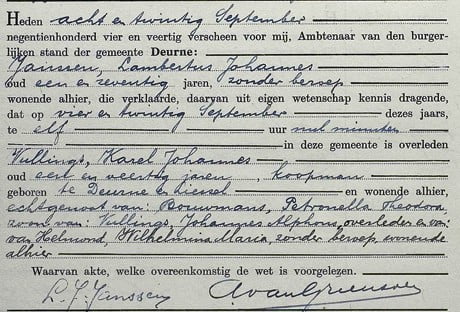 Heden acht en twintig September
negentienhonderd vier en veertig verscheen voor mij, Ambtenaar van den burger-
lijken stand der gemeente Deurne:
Janssen, Lambertus Johannes
oud een en zeventig jaren, zonder beroep
wonende alhier, die verklaarde, daarvan uit eigen wetenschap kennis dragende,
dat op vier en twintig September dezes jaars,
te elf uur nul minuten
in deze gemeente is overleden
Vullings, Karel Johannes
oud een en veertig jaren, koopman
geboren te Deurne en Liessel en wonende alhier,
echtgenoot van: Bouwmans, Petronella Theodora,
zoon van: Vullings, Johannes Alphons, overleden en van:
van Helmond, Wilhelmina Maria, zonder beroep, wonende
alhier
Waarvan akte, welke overeenkomstig de wet is voorgelezen.
L. J. Janssen A van Griensven